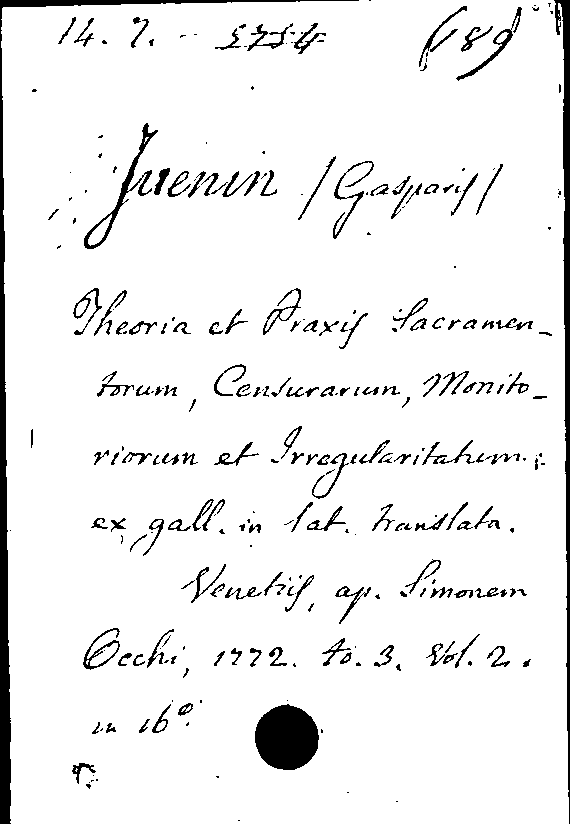 14. 7. - 5754 (89)
Juenin /Gasparis/
Theoria et Praxis Sacramen-
torum, Censurarum, Monito-
riorum et Irregularitatum;
ex gall. in lat. translata.
Venetiis, ap. Simonem
Occhi, 1772. to. 3. Vol. 2.
in 16º.